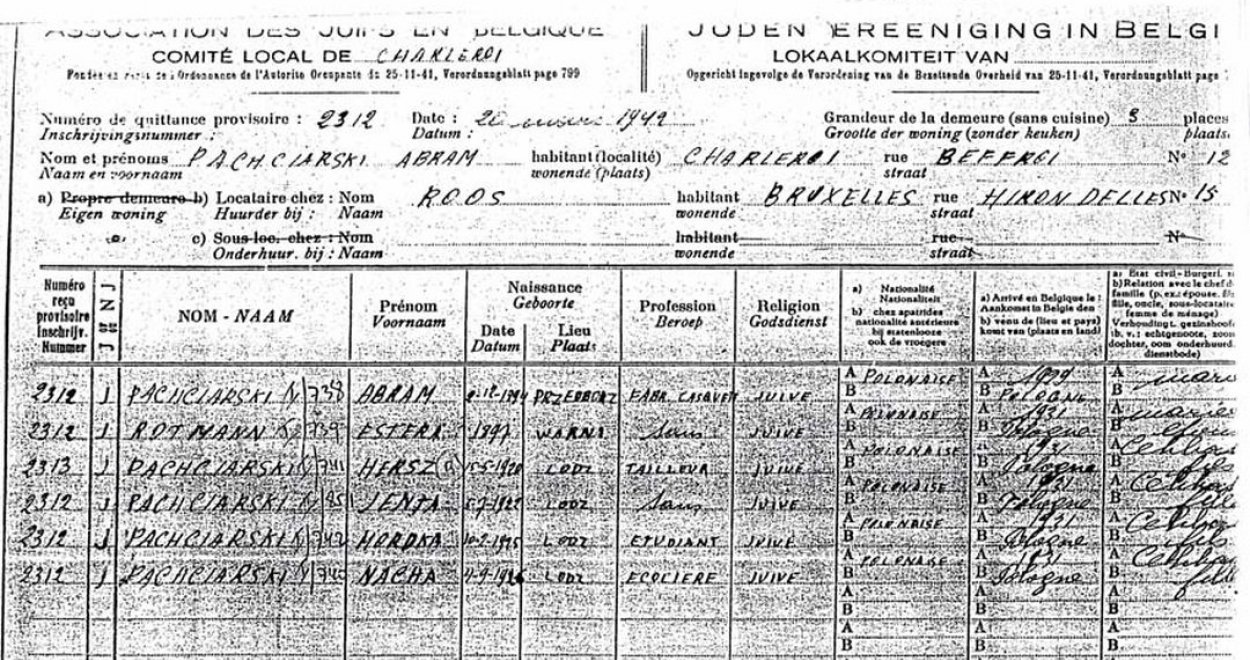 ASSOCIATION DES JUIFS EN BELGIQUE
COMITÉ LOCAL DE CHARLEROI
de l'Ordonnance de l'Autorite Occupante du 25-11-41, Verordnungsblatt page 799
JODEN VEREENIGING IN BELGI
LOKAALKOMITEIT VAN
Opgericht ingevolge de Verordening van de Bezettende Overheid van 25-11-41, Verordnungsblatt page
Numéro de quittance provisoire : 2312 Date : 20 1942 Grandeur de la demeure (sans cuisine) 3 places
Inschrijvingsnummer : Datum : Grootte der woning (zonder keuken) plaats.
Nom et prénoms PACHCIARSKI ABRAM habitant (localité) CHARLEROI rue BEFFROI N° 12
Naam en voornaam wonende (plaats) straat
a) Propre demeure b) Locataire chez : Nom ROOS habitant BRUXELLES rue HIRONDELLES N° 15
Eigen woning Huurder bij : Naam wonende straat
c) Sous-loc. chez : Nom habitant rue N°
Onderhuur. bij : Naam wonende straat
Numéro reçu provisoire Inschrijv. Nummer
J N J
NOM - NAAM
Prénom Voornaam
Naissance Geboorte
Date Datum
Lieu Plaats
Profession Beroep
Religion Godsdienst
a) Nationalité Nationaliteit b) chez apatrides nationalité antérieure bij statenlooze ook de vroegere
a) Arrivé en Belgique le : Aankomst in Belgie den b) venu de (lieu et pays) komt van (plaats en land)
a) Etat civil - Burgerl. b) Relation avec le chef de famille (p. ex.: épouse, fille, oncle, sous-locataire femme de ménage) Verhouding t. gezinshoofd (b. v.: echtgenoote, zoon dochter, oom onderhuurd. dienstbode)
2312 J PACHCIARSKI 738 ABRAM PRZEDBORZ FABR. CASQUETT JUIVE A POLONAISE B A 1929 B POLOGNE A B
2312 J ROTMANN 739 ESTERA 1897 WARNI Sans JUIVE A POLONAISE B A 1931 B Pologne A B
2313 J PACHCIARSKI 741 HERSZ 15-5-1920 LODZ TAILLEUR JUIVE A POLONAISE B A 1931 B Pologne A B fils
2312 J PACHCIARSKI JENTA LODZ Sans JUIVE A POLONAISE B A 1931 B Pologne A B fille
2312 J PACHCIARSKI 742 MORDKA LODZ ETUDIANT JUIVE A POLONAISE B A 1931 B Pologne A B fils
2312 J PACHCIARSKI NACHA LODZ ECOLIERE JUIVE A POLONAISE B A 1931 B Pologne A B fille
A B A B A B
A B A B A B